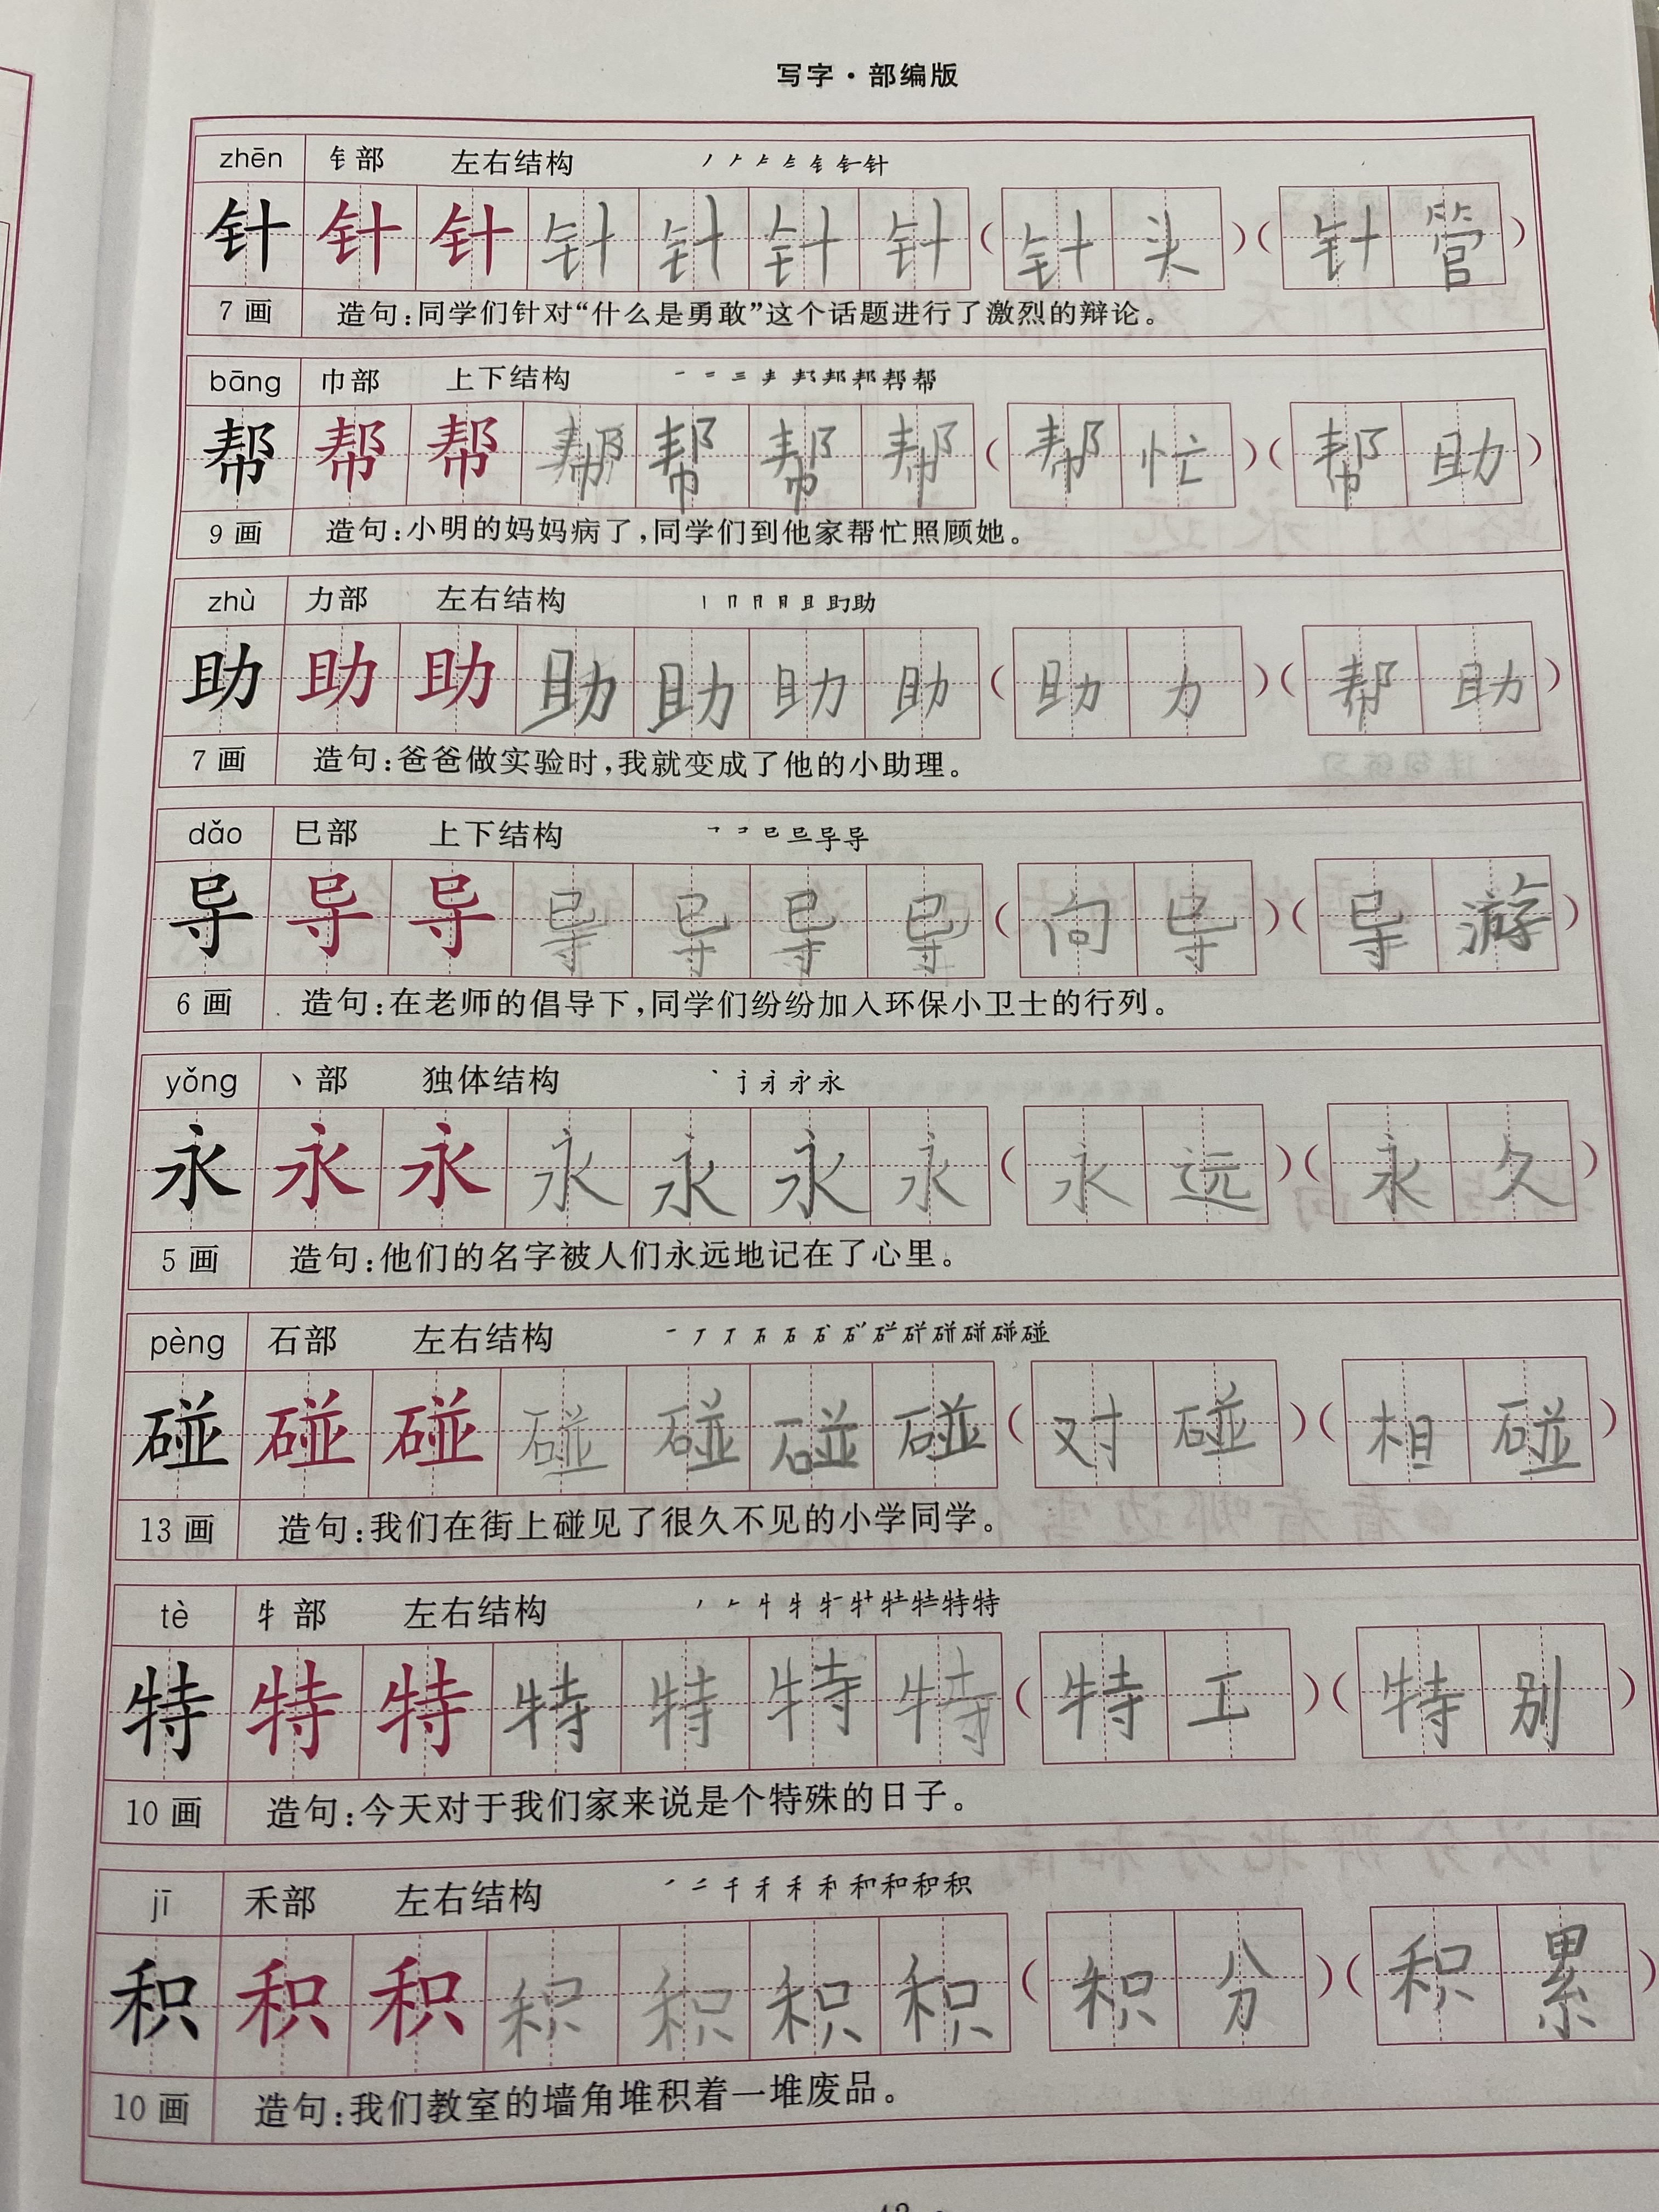 写字·部编版
zhēn 钅部 左右结构 丿 𠂉 钅 针
针 针 针 针 针 针 针 (针头)(针管)
7画 造句:同学们针对“什么是勇敢”这个话题进行了激烈的辩论。
bāng 巾部 上下结构 一 二 三 丰 邦 帮
帮 帮 帮 帮 帮 帮 帮 (帮忙)(帮助)
9画 造句:小明的妈妈病了,同学们到他家帮忙照顾她。
zhù 力部 左右结构 丨 冂 月 且 助
助 助 助 助 助 助 助 (助力)(帮助)
7画 造句:爸爸做实验时,我就变成了他的小助理。
dǎo 巳部 上下结构 巳 导 导
导 导 导 导 导 导 导 (向导)(导游)
6画 造句:在老师的倡导下,同学们纷纷加入环保小卫士的行列。
yǒng 丶部 独体结构 丶 永
永 永 永 永 永 永 永 (永远)(永久)
5画 造句:他们的名字被人们永远地记在了心里。
pèng 石部 左右结构 一 丆 石 石 碰 碰
碰 碰 碰 碰 碰 碰 碰 (对碰)(相碰)
13画 造句:我们在街上碰见了很久不见的小学同学。
tè 牜部 左右结构 丿 𠂉 牜 特 特
特 特 特 特 特 特 特 (特工)(特别)
10画 造句:今天对于我们家来说是个特殊的日子。
jī 禾部 左右结构 丿 二 千 禾 禾 和 和 积
积 积 积 积 积 积 积 (积分)(积累)
10画 造句:我们教室的墙角堆积着一堆废品。